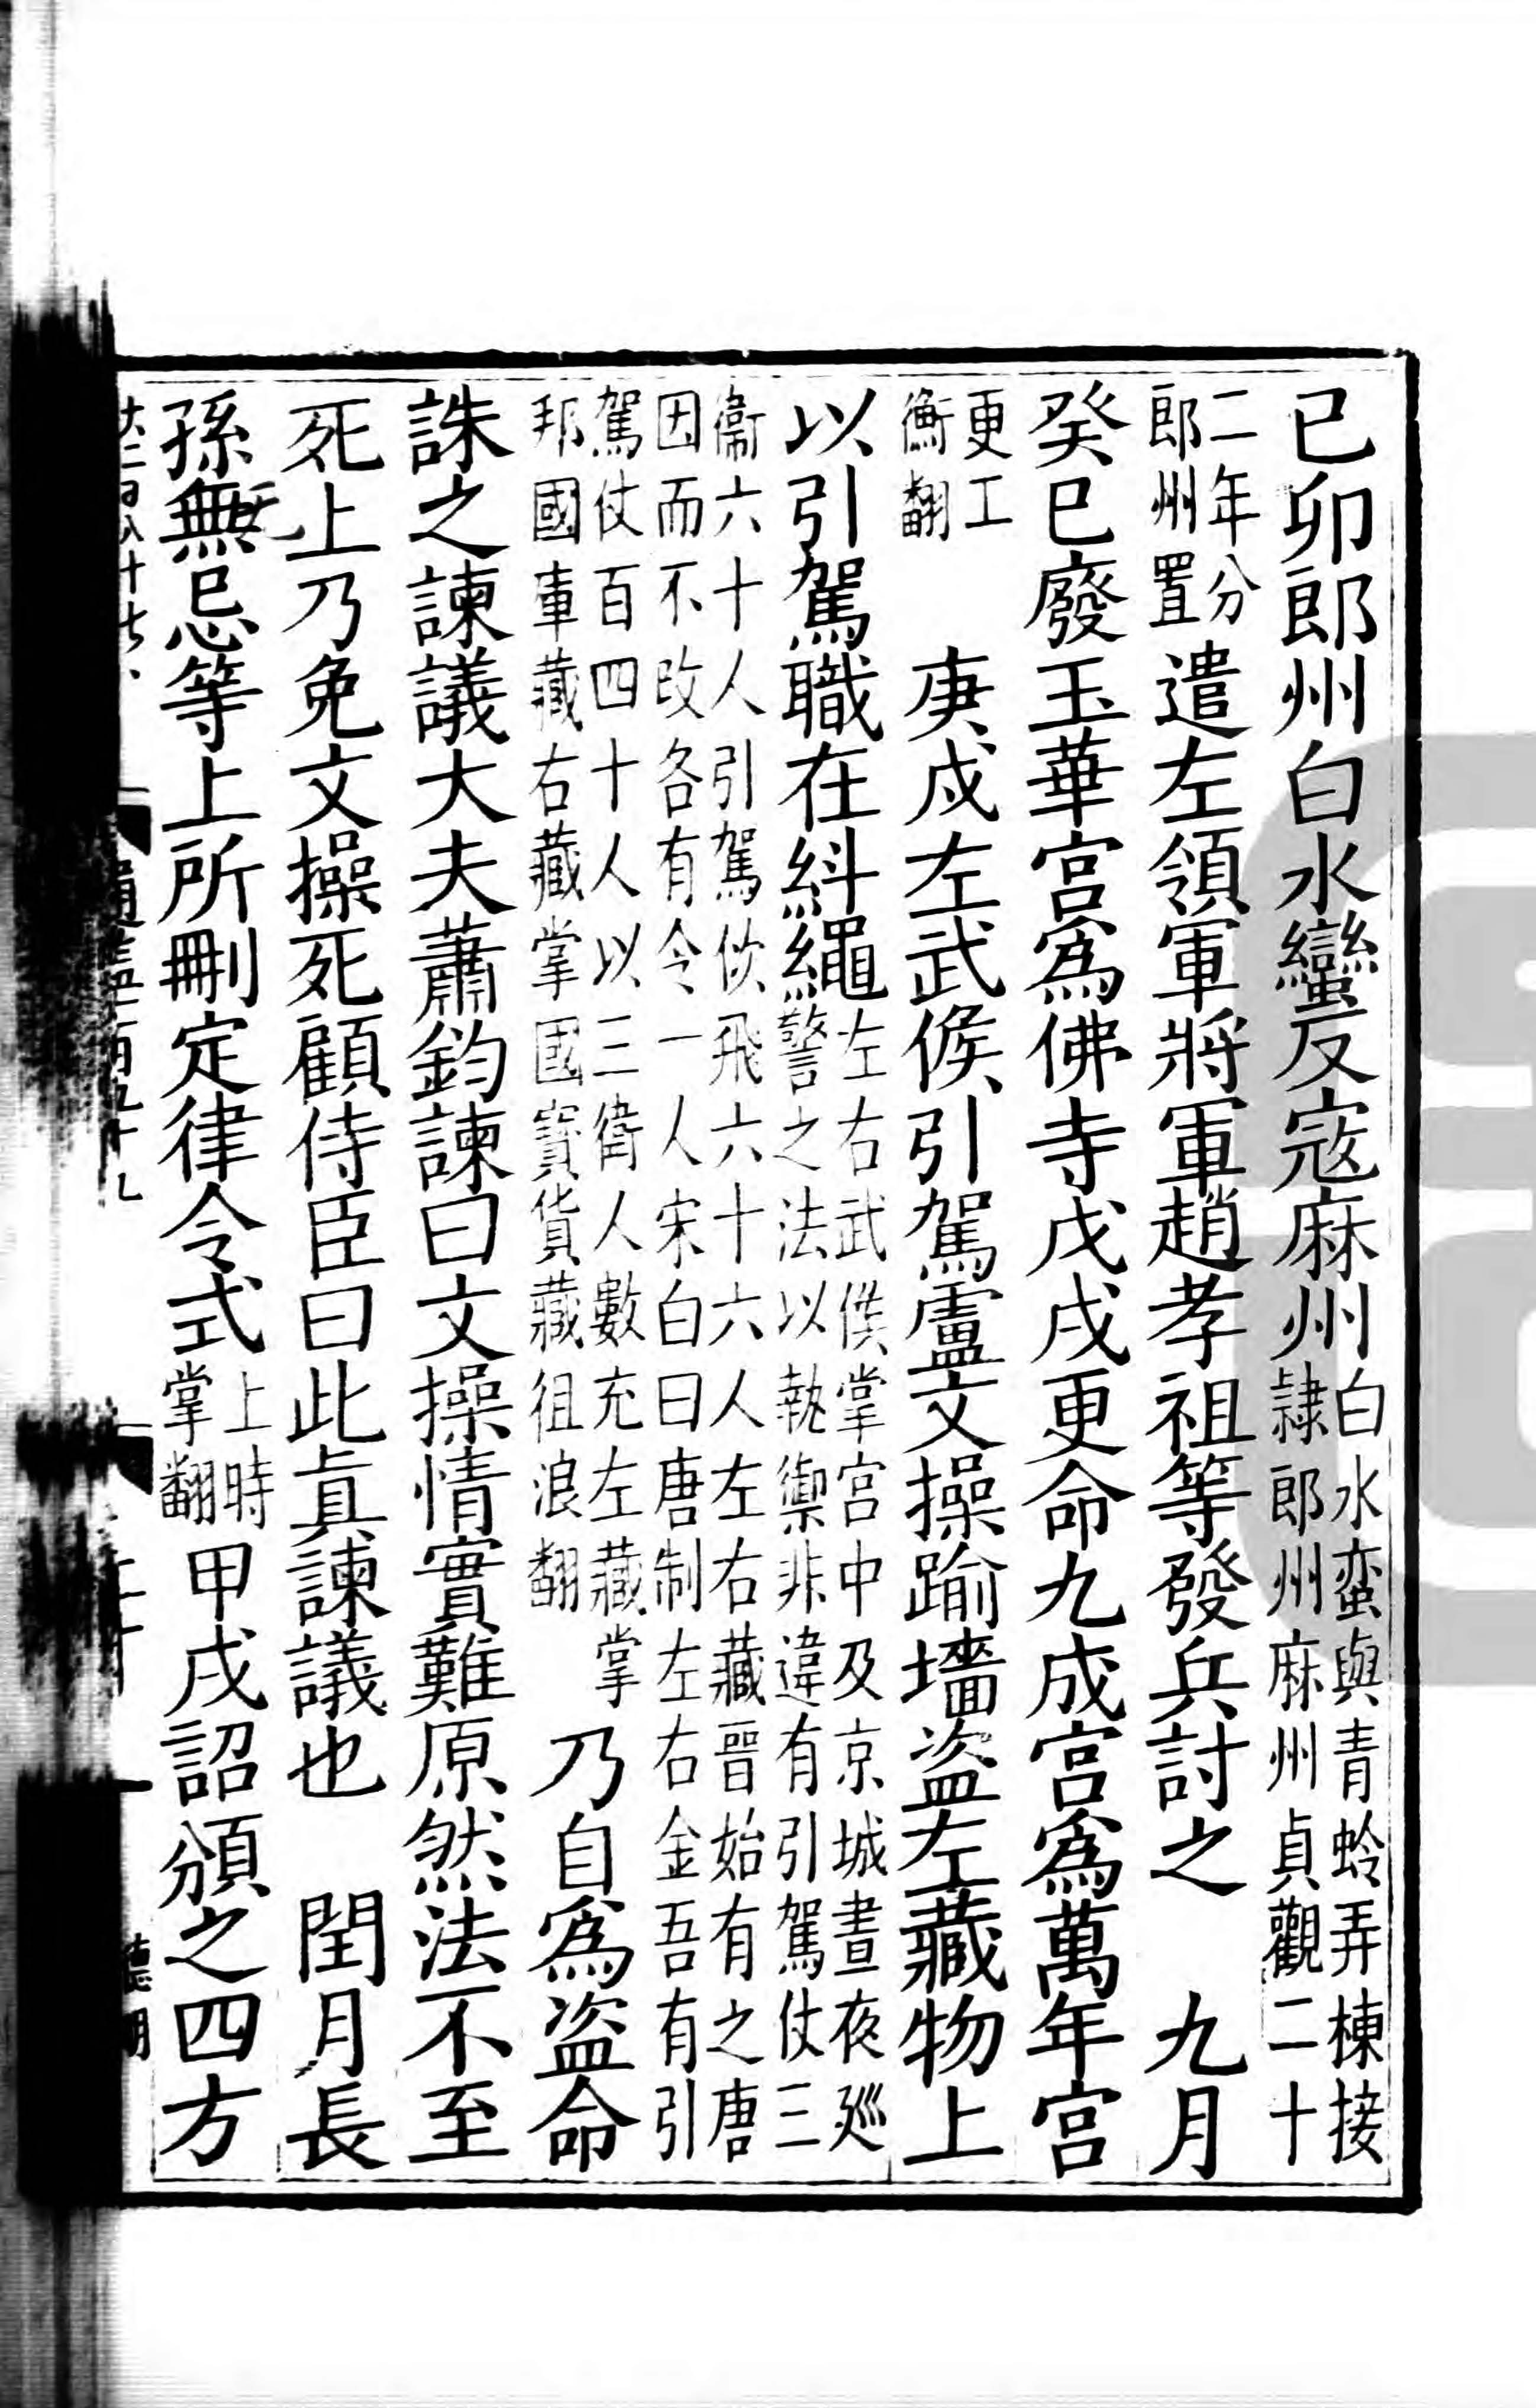 已卯郎州白水蠻反寇麻州白水蛮與青蛉弄棟接隷郎州麻州貞觀二十
二年分郎州置遣左領軍將軍趙孝祖等發兵討之　九月
癸巳廢玉華宮爲佛寺戊戌更命九成宮爲萬年宮
更工衡翻　庚戌左武候引駕盧文操踰墻盗左藏物上
以引駕職在糾繩左右武候掌宮中及京城晝夜廵警之法以執禦非違有引駕仗三
衞六十人引駕佽飛六十六人左右藏晉始有之唐因而不改各有令一人宋白曰唐制左右金吾有引
駕仗百四十人以三衛人數充左藏掌邦國庫藏右藏掌國寳貨藏徂浪翻　乃自爲盗命
誅之諫議大夫蕭鈞諫曰文操情實難原然法不至
死上乃免文操死顧侍臣曰此眞諫議也　閏月長
孫無忌等上所刪定律令式上時掌翻甲戌詔頒之四方